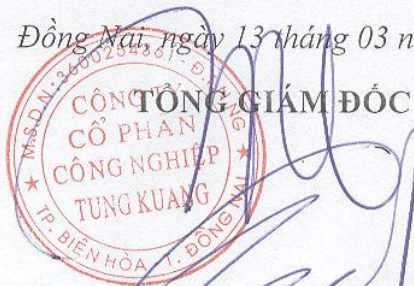 Đồng Nai, ngày 13 tháng 03 n
TỔNG GIÁM ĐỐC
M.S.D.N:
CÔNG TY
CỔ PHẦN
CÔNG NGHIỆP
TUNG KUANG
TP. BIÊN HÒA T. ĐỒNG NAI